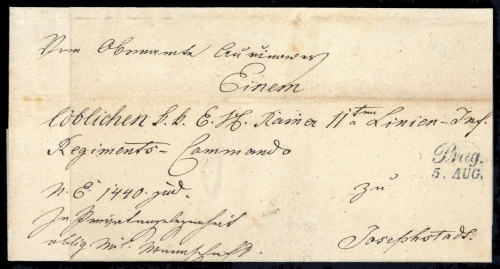 Vom Oberamte
Einem
löblichen k. k. E. H. Rainer 11ten Linien-Inf.
Regiments-Commando
Prag.
5. AUG.
N. E. 1440. jud.
zu
In Privatangelegenheit
oblig. Mil. Mannschaft.
Josephstadt.